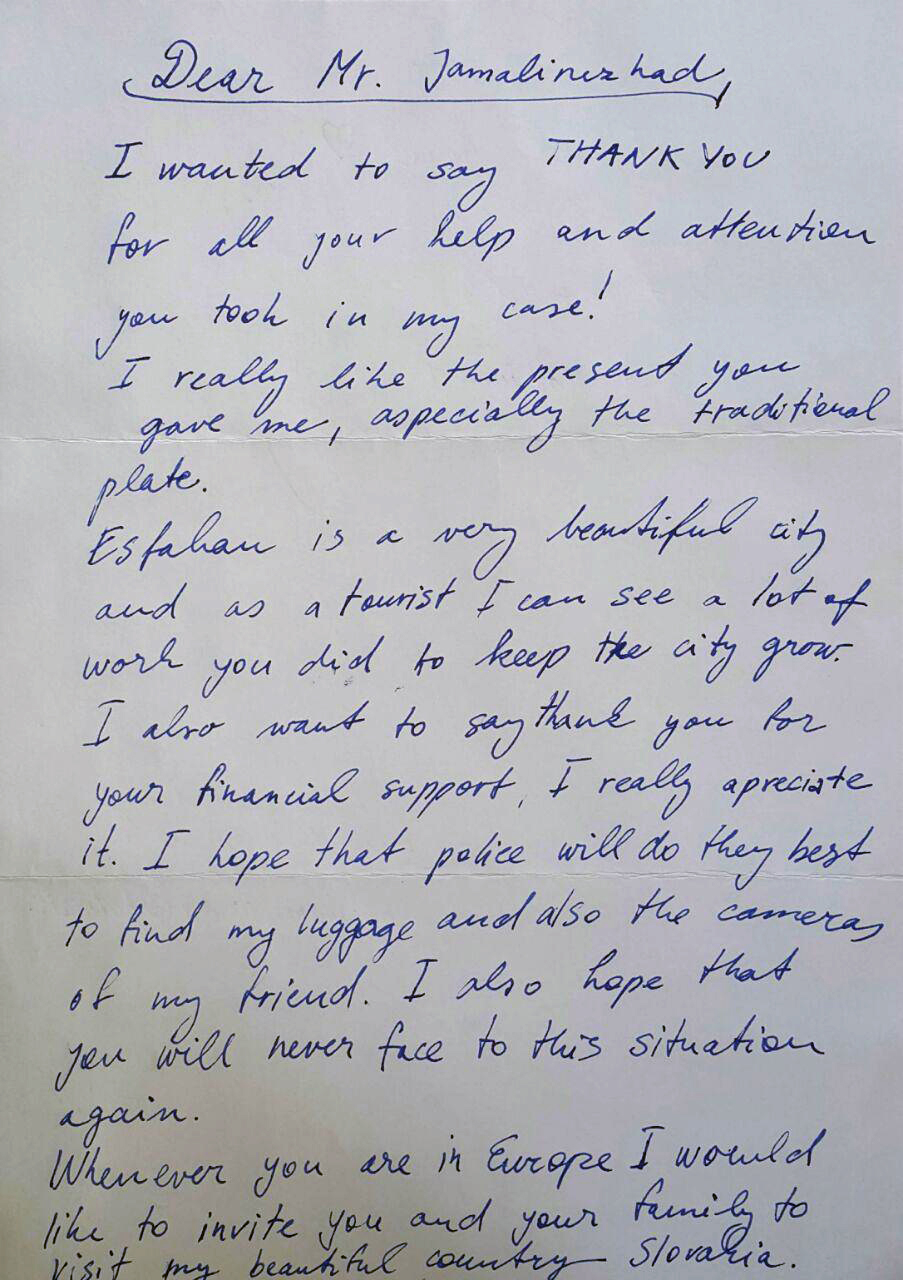 Dear Mr. Jamalinezhad,
I wanted to say THANK YOU
for all your help and attention
you took in my case!
I really like the present you
gave me, aspecially the traditional
plate.
Esfahan is a very beautiful city
and as a tourist I can see a lot of
work you did to keep the city grow.
I also want to say thank you for
your financial support, I really apreciate
it. I hope that police will do they best
to find my luggage and also the cameras
of my friend. I also hope that
you will never face to this situation
again.
Whenever you are in Europe I would
like to invite you and your family to
visit my beautiful country Slovakia.